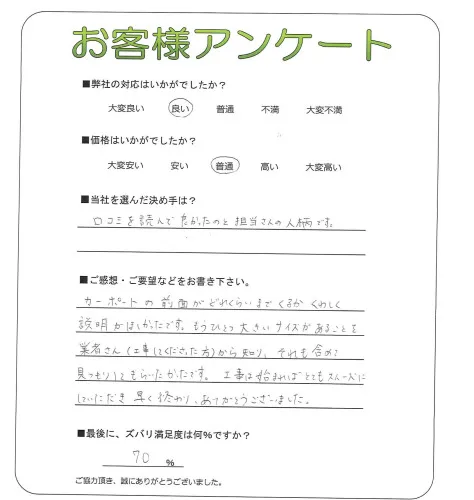 お客様アンケート
■弊社の対応はいかがでしたか？
大変良い 良い 普通 不満 大変不満
■価格はいかがでしたか？
大変安い 安い 普通 高い 大変高い
■当社を選んだ決め手は？
口コミを読んで良かったのと担当さんの人柄です。
■ご感想・ご要望などをお書き下さい。
カーポートの前面がどれくらいまでくるか くわしく
説明がほしかったです。もうひとつ大きいサイズがあることを
業者さん(工事してくださった方)から知り、それも含めて
見つもりしてもらいたかったです。工事は始まればとてもスムーズに
していただき 早く終わり、ありがとうございました。
■最後に、ズバリ満足度は何%ですか？
70 %
ご協力頂き、誠にありがとうございました。